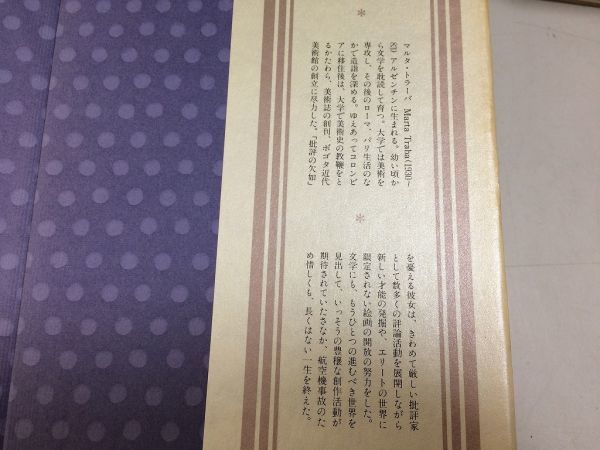 マルタ・トラーバ Marta Traba(1930〜
83) アルゼンチンに生まれる。幼い頃か
ら文学を耽読して育つ。大学では美術を
専攻し、その後のローマ、パリ生活のな
かで造詣を深める。ゆえあってコロンビ
アに移住後は、大学で美術史の教鞭をと
るかたわら、美術誌の創刊、ボゴタ近代
美術館の創立に尽力した。「批評の欠如」
を憂える彼女は、きわめて厳しい批評家
として数多くの評論活動を展開しながら
新しい才能の発掘や、エリートの世界に
限定されない絵画の開放の努力をした。
文学にも、もうひとつの進むべき世界を
見出して、いっそうの豊穣な創作活動が
期待されていたさなか、航空機事故のた
め惜しくも、長くはない一生を終えた。